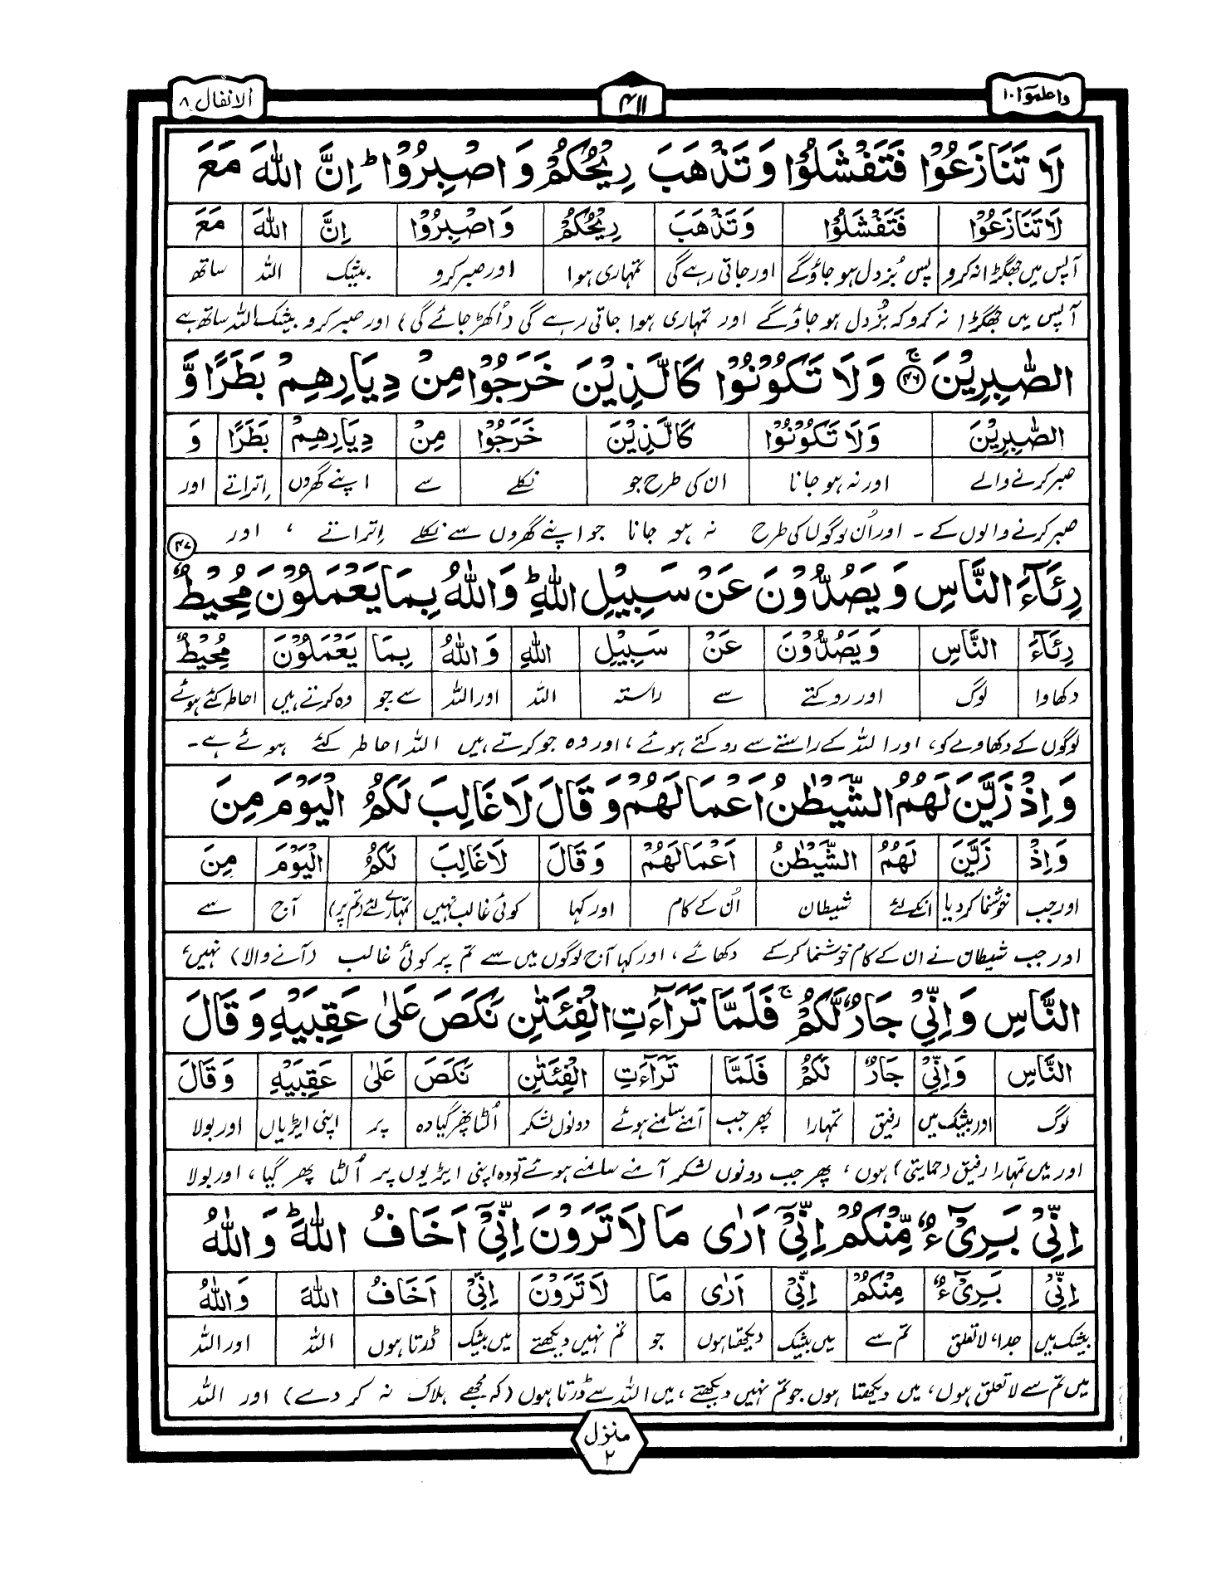 واعلموا ۱۰
۴۱۱
الانفال ۸
لَا تَنَازَعُوْا فَتَفْشَلُوْا وَتَذْهَبَ رِيْحُكُمْ وَاصْبِرُوْا ؕ اِنَّ اللّٰهَ مَعَ
لَا تَنَازَعُوْا فَتَفْشَلُوْا وَتَذْهَبَ رِيْحُكُمْ وَاصْبِرُوْا اِنَّ اللّٰهَ مَعَ
آپس میں جھگڑا نہ کرو پس بُزدل ہو جاؤ گے اور جاتی رہے گی تمہاری ہوا اور صبر کرو بیشک اللہ ساتھ
آپس میں جھگڑا نہ کرو کہ بُزدل ہو جاؤ گے اور تمہاری ہوا جاتی رہے گی (اُکھڑ جائے گی) اور صبر کرو بیشک اللہ ساتھ ہے
الصّٰبِرِيْنَ ۚ ۴۶ وَلَا تَكُوْنُوْا كَالَّذِيْنَ خَرَجُوْا مِنْ دِيَارِهِمْ بَطَرًا وَّ
الصّٰبِرِيْنَ وَلَا تَكُوْنُوْا كَالَّذِيْنَ خَرَجُوْا مِنْ دِيَارِهِمْ بَطَرًا وَ
صبر کرنے والے اور نہ ہو جانا ان کی طرح جو نکلے سے اپنے گھروں اِتراتے اور
صبر کرنے والوں کے ۔ اور اُن لوگوں کی طرح نہ ہو جانا جو اپنے گھروں سے نکلے اِتراتے ، اور
رِئَآءَ النَّاسِ وَيَصُدُّوْنَ عَنْ سَبِيْلِ اللّٰهِ ؕ وَاللّٰهُ بِمَا يَعْمَلُوْنَ مُحِيْطٌ ۴۷
رِئَآءَ النَّاسِ وَيَصُدُّوْنَ عَنْ سَبِيْلِ اللّٰهِ وَاللّٰهُ بِمَا يَعْمَلُوْنَ مُحِيْطٌ
دکھاوا لوگ اور روکتے سے راستہ اللہ اور اللہ سے جو وہ کرتے ہیں احاطہ کئے ہوئے
لوگوں کے دکھاوے کو، اور اللہ کے راستے سے روکتے ہوئے ، اور وہ جو کرتے ہیں اللہ احاطہ کئے ہوئے ہے ۔
وَاِذْ زَيَّنَ لَهُمُ الشَّيْطٰنُ اَعْمَالَهُمْ وَقَالَ لَا غَالِبَ لَكُمُ الْيَوْمَ مِنَ
وَاِذْ زَيَّنَ لَهُمُ الشَّيْطٰنُ اَعْمَالَهُمْ وَقَالَ لَا غَالِبَ لَكُمُ الْيَوْمَ مِنَ
اور جب خوشنما کر دیا انکے لئے شیطان اُن کے کام اور کہا کوئی غالب نہیں تمہارے لئے (تم پر) آج سے
اور جب شیطان نے ان کے کام خوشنما کرکے دکھائے ، اور کہا آج لوگوں میں سے تم پر کوئی غالب (آنے والا) نہیں ،
النَّاسِ وَاِنِّيْ جَارٌ لَّكُمْ ۚ فَلَمَّا تَرَآءَتِ الْفِئَتٰنِ نَكَصَ عَلٰى عَقِبَيْهِ وَقَالَ
النَّاسِ وَاِنِّيْ جَارٌ لَكُمْ فَلَمَّا تَرَآءَتِ الْفِئَتٰنِ نَكَصَ عَلٰى عَقِبَيْهِ وَقَالَ
لوگ اور بیشک میں رفیق تمہارا پھر جب آمنے سامنے ہوئے دونوں لشکر اُلٹا پھر گیا وہ پر اپنی ایڑیاں اور بولا
اور میں تمہارا رفیق (حمایتی) ہوں ، پھر جب دونوں لشکر آمنے سامنے ہوئے تو وہ اپنی ایڑیوں پر اُلٹا پھر گیا ، اور بولا
اِنِّيْ بَرِيْٓءٌ مِّنْكُمْ اِنِّيْٓ اَرٰى مَا لَا تَرَوْنَ اِنِّيْٓ اَخَافُ اللّٰهَ ؕ وَاللّٰهُ
اِنِّيْ بَرِيْٓءٌ مِنْكُمْ اِنِّيْ اَرٰى مَا لَا تَرَوْنَ اِنِّيْ اَخَافُ اللّٰهَ وَاللّٰهُ
بیشک میں جدا، لا تعلق تم سے میں بیشک دیکھتا ہوں جو تم نہیں دیکھتے میں بیشک ڈرتا ہوں اللہ اور اللہ
میں تم سے لا تعلق ہوں، میں دیکھتا ہوں جو تم نہیں دیکھتے ، میں اللہ سے ڈرتا ہوں (کہ مجھے ہلاک نہ کر دے) اور اللہ
منزل ۲